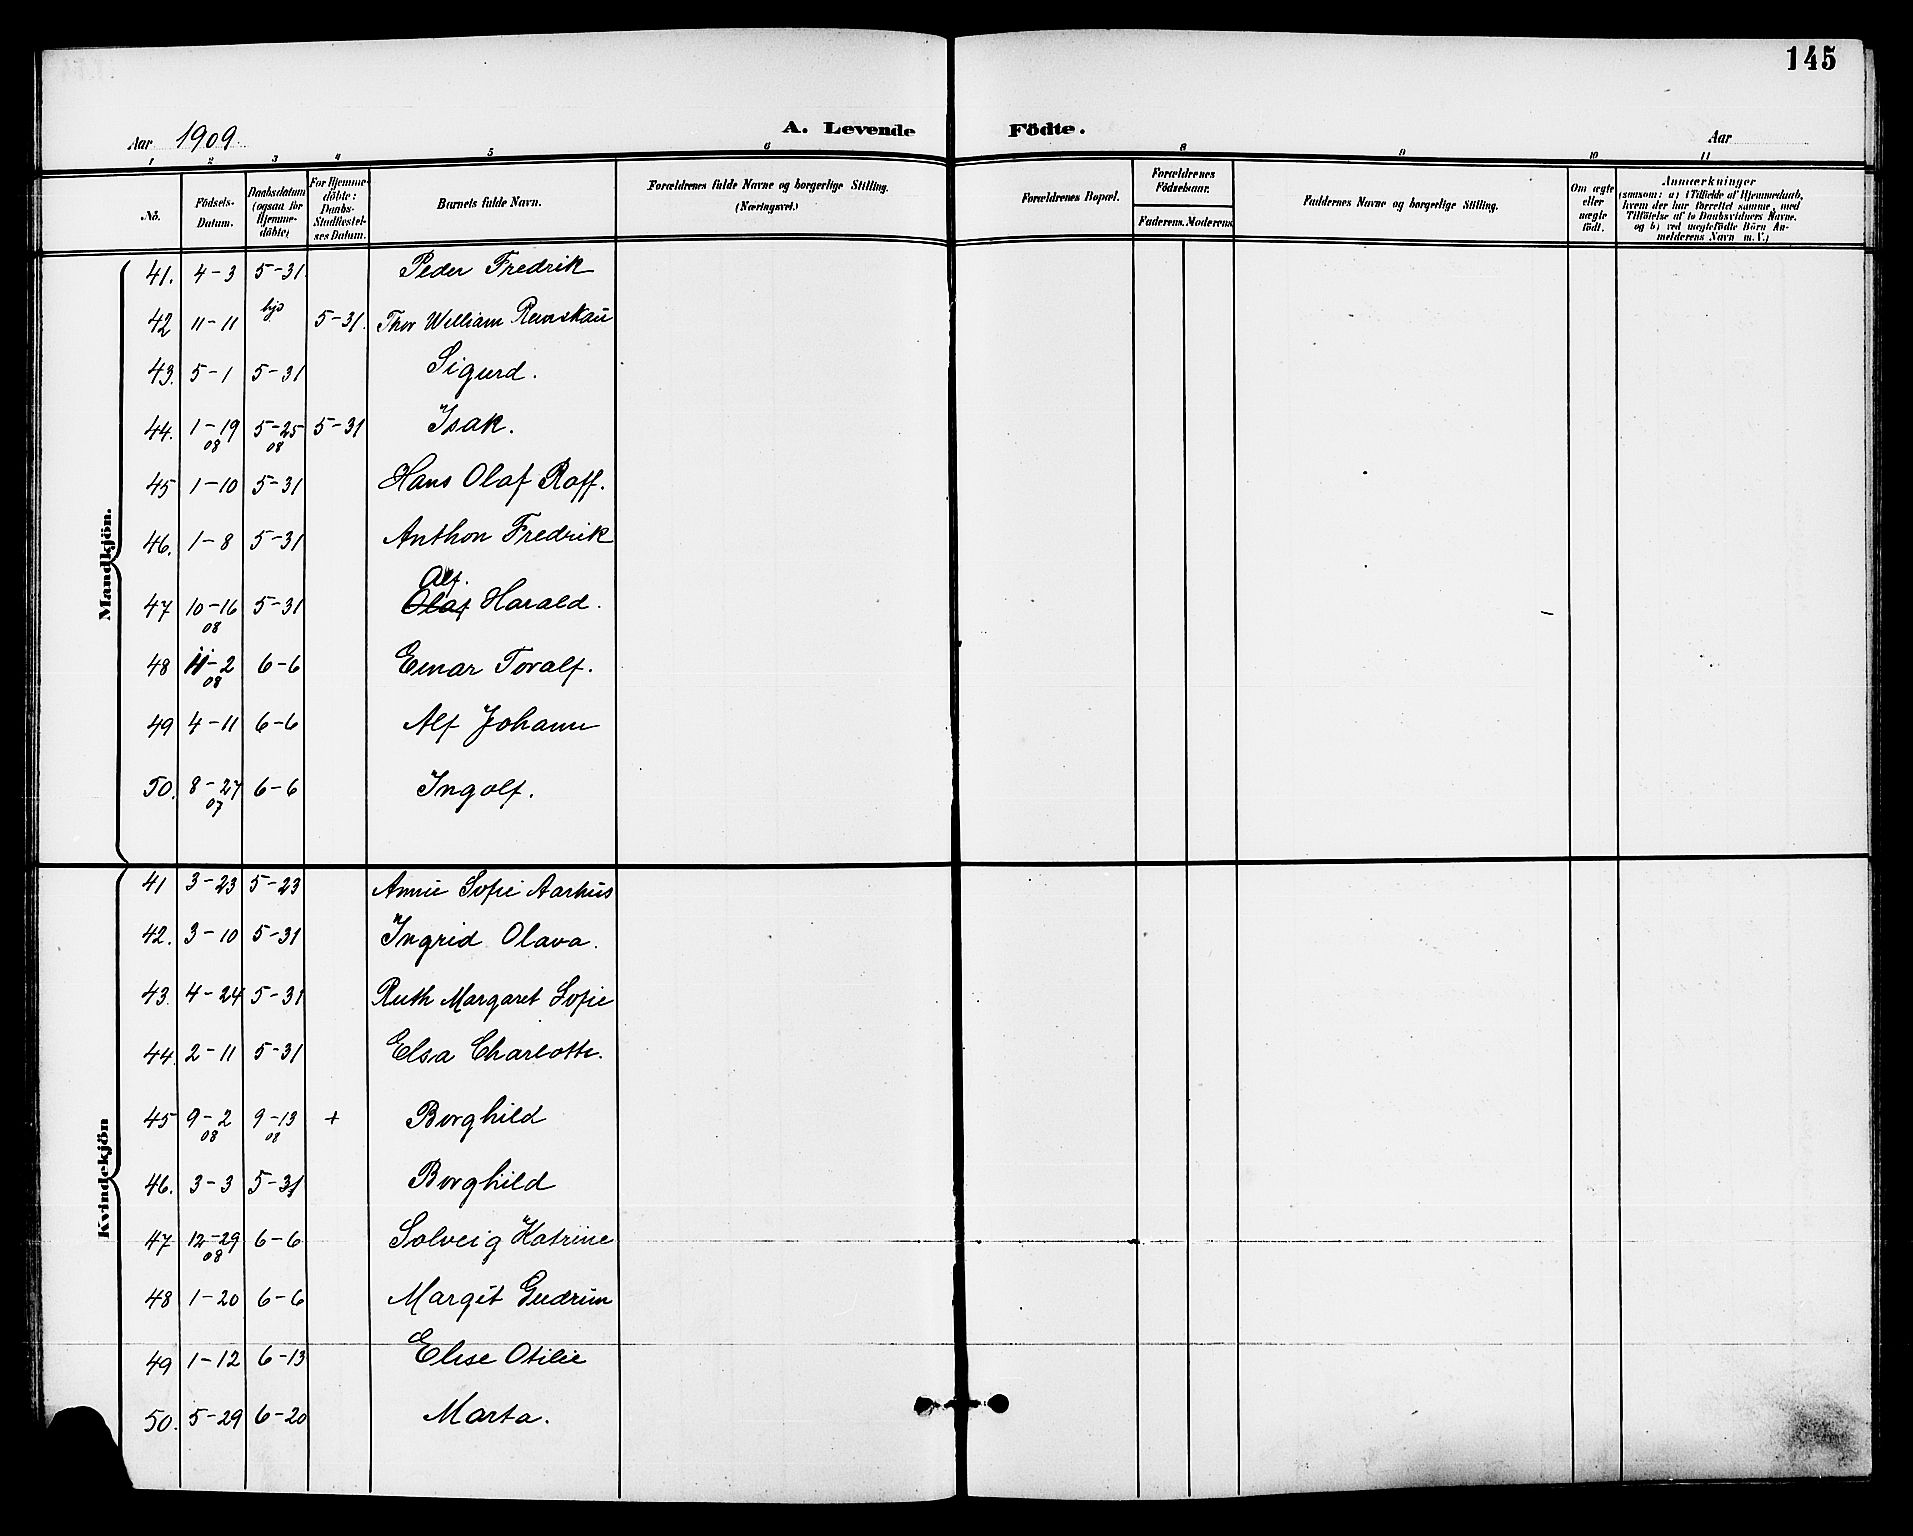 145
A. Levende Födte.
Aar 1909.
Aar
1 2 3 4 5 6 8 9 10 11
No.
Födsels-Datum.
Daabsdatum (ogsaa for Hjemmedöbte)
For Hjemmedöbte: Daabs-Stadfæstelses Datum.
Barnets fulde Navn.
Forældrenes fulde Navne og borgerlige Stilling. (Næringsvei.)
Forældrenes Bopæl.
Forældrenes Födselsaar.
Faderens. Moderens.
Faddernes Navne og borgerlige Stilling.
Om ægte eller uægte födt.
Anmærkninger
(saasom: a) i Tilfælde af Hjemmedaab, hvem der har forrettet samme, med Tilföielse af to Daabsvidners Navne. og b) ved uægtefödte Börn Anmelderens Navn m. V.)
Mandkjön.
41. 4-3 5-31 Peder Fredrik
42 11-11 hjd 5-31. Thor William
43. 5-1 5-31 Sigurd.
44. 1-19 08 5-25 08 5-31 Isak.
45 1-10 5-31 Hans Olaf Roff.
46. 1-8 5-31 Anthon Fredrik
Alf.
47 10-16 08 5-31 Olaf Harald.
48 11-2 08 6-6 Einar Toralf.
49 4-11 6-6 Alf Johann
50. 8-27 07 6-6 Ingolf.
Kvindekjön
41 3-23 5-23 Annie Sofie Aarhus
42. 3-10 5-31 Ingrid Olava.
43. 4-24 5-31 Ruth Margaret Sofie
44. 2-11 5-31 Elsa Charlotte.
45 9-2 08 9-13 08 + Borghild
46. 3-3 5-31 Borghild
47 12-29 08 6-6 Solveig Katrine
48 1-20 6-6 Margit Gudrun
49 1-12 6-13 Elise Otilie
50. 5-29 6-20 Marta.